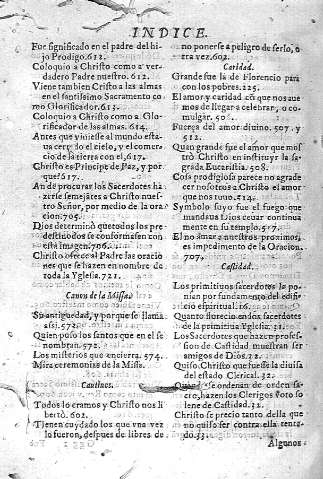 INDICE.
Fue significado en el padre del hi-
jo Prodigo. 612.
Coloquio a Christo como a ver-
dadero Padre nuestro. 612.
Viene tambien Cristo a las almas
en el santissimo Sacramento co-
mo Glorificador. 613.
Coloquio a Christo como a Glo-
rificador de las almas. 614.
Antes que viniesse al mundo esta-
ua cerrado el cielo, y el comer-
cio de la tierra con el, 617.
Christo es Principe de Paz, y por-
que? 617.
An de procurar los Sacerdotes ha-
zerse semejantes a Christo nues-
tro Señor, por medio de la ora-
cion. 705.
Dios determinò que todos los pre-
destinados se conformassen con
esta imagen. 706.
Christo ofrece al Padre las oracio
nes que se hazen en nombre de
toda la Yglesia. 721.
Canon de la Missa.
Su antiguedad, y porque se llama
assi. 572.
Quien puso los santos que en el se
nombran. 572.
Los misterios que encierra. 574.
Mira ceremonias de la Missa.
Cautiuos.
Todos lo eramos y Christo nos li
bertò. 602.
Tienen cuydado los que vna vez
lo fueron, despues de libres de
no ponerse a peligro de serlo, o
tra vez. 602.
Caridad.
Grande fue la de Florencio para
con los pobres. 125.
El amor y caridad cõ que nos aue
mos de llegar a celebrar, o co-
mulgar. 506.
Fuerça del amor diuino. 507. y
512.
Quan grande fue el amor que mos
trò Christo en instituyr la sa-
grada Eucaristia. 508.
Cosa prodigiosa parece no agrade
cer nosotros a Christo el amor
que nos tuuo. 514.
Symbolo suyo fue el fuego que
mandaua Dios ceuar continua
mente en su templo. 517.
El no amar a nuestros proximos,
es impedimento de la Oracion.
707.
Castidad.
Los primitiuos sacerdotes la po-
nian por fundamento del edifi-
cio espiritual. 16.
Quanto florecio en los sacerdotes
de la primitiua Yglesia. 31.
Los Sacerdotes que hazen profes-
sion de Castidad muestran ser
amigos de Dios. 32.
Quiso Christo que fuesse la diuisa
del estado Clerical. 32.
Quando se ordenan de orden sa-
cro, hazen los Clerigos voto so
lene de Castidad. 32.
Christo se precio tanto della que
no quiso ser contra ella tenta-
do. 33.
Algunos